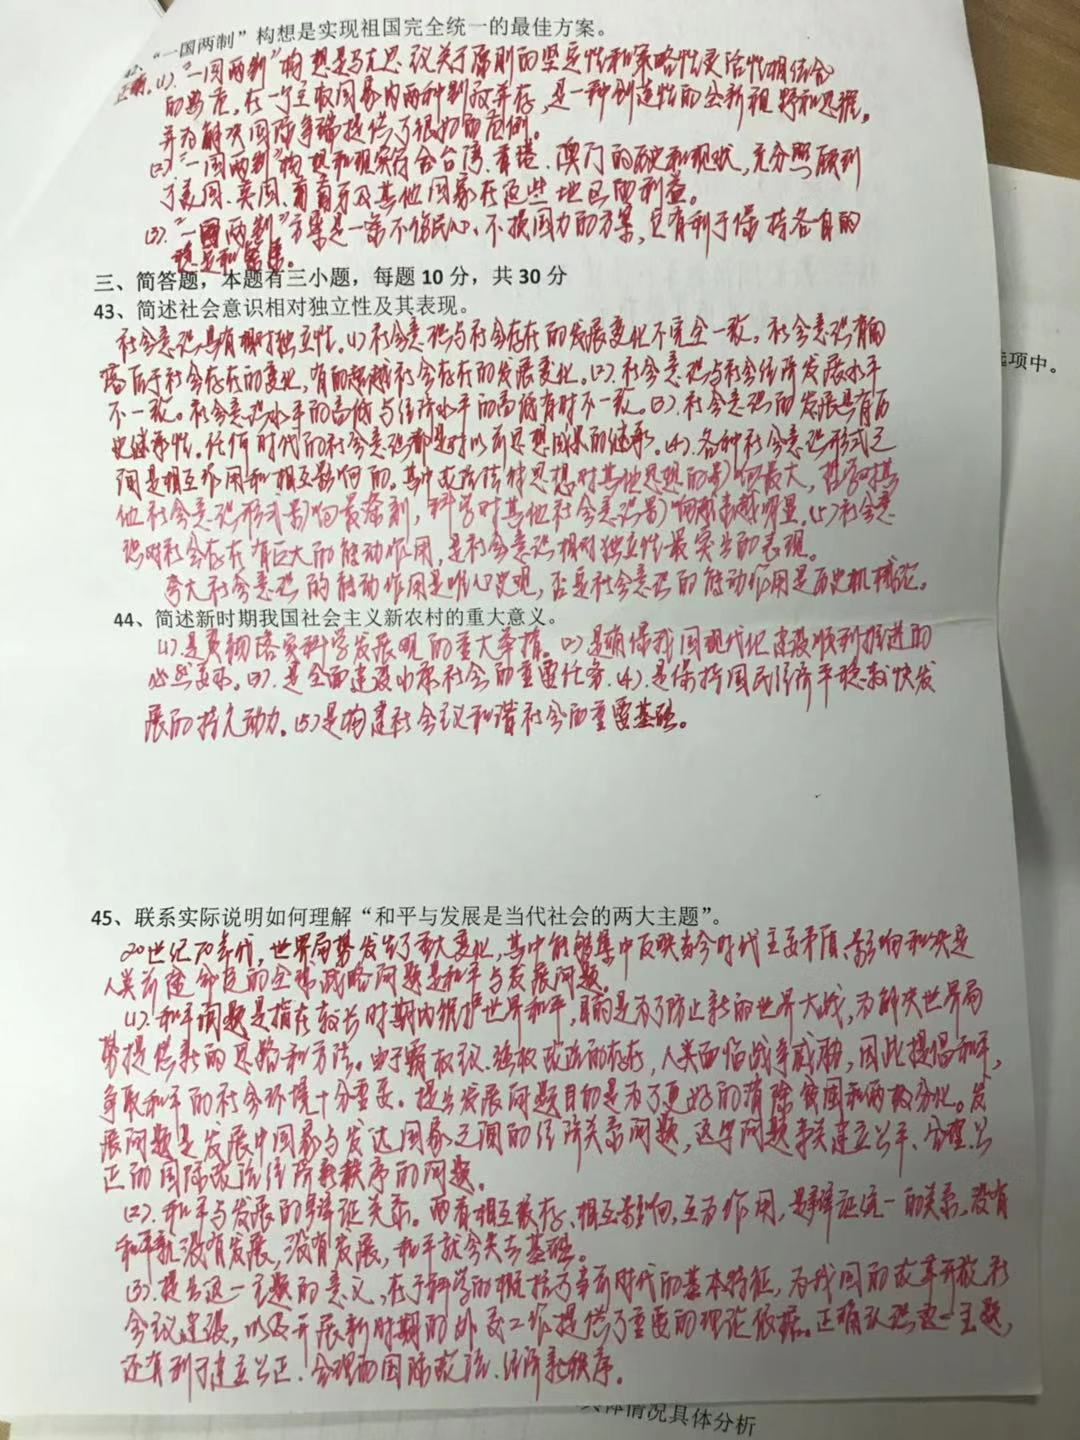 “一国两制”构想是实现祖国完全统一的最佳方案。
正确。(1).“一国两制”构想是马克思主义关于原则的坚定性和策略性灵活性相结合
的典范。在一个主权国家内两种制度并存，是一种创造性的全新祖
并为解决国际争端提供了很好的范例。
(2).“一国两制”构想和现实符合台湾、香港、澳门的历史和现状，充分照顾到
了美国、英国、葡萄牙及其他国家在这些地区的利益。
(3).“一国两制”方案是一条不伤民心、不损国力的方案，它有利于保持各自的
稳定和繁荣。
三、简答题，本题有三小题，每题 10 分，共 30 分
43、简述社会意识相对独立性及其表现。
社会意识具有相对独立性。(1)社会意识与社会存在的发展变化不完全一致。社会意识有的
落后于社会存在的变化，有的超越社会存在的发展变化。(2).社会意识与社会经济发展水平
不一致。社会意识水平的高低与经济水平的高低有时不一致。(3).社会意识的发展具有历
史继承性。任何时代的社会意识都是对以前思想成果的继承。(4).各种社会意识形式之
间是相互作用和相互影响的。其中政治法律思想对其他思想的影响最大，哲学对其
他社会意识形式影响最深刻，科学对其他社会意识影响越来越明显。(5)社会意
识对社会存在有巨大的能动作用，是社会意识相对独立性最突出的表现。
夸大社会意识的能动作用是唯心史观，否定社会意识的能动作用是历史机械论。
44、简述新时期我国社会主义新农村的重大意义。
(1).是贯彻落实科学发展观的重大举措。(2).是确保我国现代化建设顺利推进的
必然要求。(3).是全面建设小康社会的重要任务.(4).是保持国民经济平稳较快发
展的持久动力。(5)是构建社会主义和谐社会的重要基础。
45、联系实际说明如何理解“和平与发展是当代社会的两大主题”。
20世纪70年代，世界局势发生了重大变化，其中能够集中反映当今时代主要矛盾、影响和决定
人类前途命运的全球战略问题是和平与发展问题。
(1).和平问题是指在较长时期内维护世界和平，目的是为了防止新的世界大战，为解决世界局
势提供新的思路和方法。由于霸权主义、强权政治的存在，人类面临战争威胁，因此提倡和平，
争取和平的社会环境十分重要。提出发展问题目的是为了更好的消除贫困和两极分化。发
展问题是发展中国家与发达国家之间的经济关系问题，这些问题事关建立公平、合理、公
正的国际政治经济新秩序的问题。
(2).和平与发展的辩证关系。两者相互依存、相互影响，互为作用，是辩证统一的关系。没有
和平就没有发展，没有发展，和平就会失去基础。
(3).提出这一主题的意义，在于科学的概括了当前时代的基本特征，为我国的改革开放和社
会主义建设，以及开展新时期的外交工作提供了重要的理论依据。正确认识这一主题，
还有利于建立公正、合理的国际政治、经济新秩序。
选项中。
具体情况具体分析